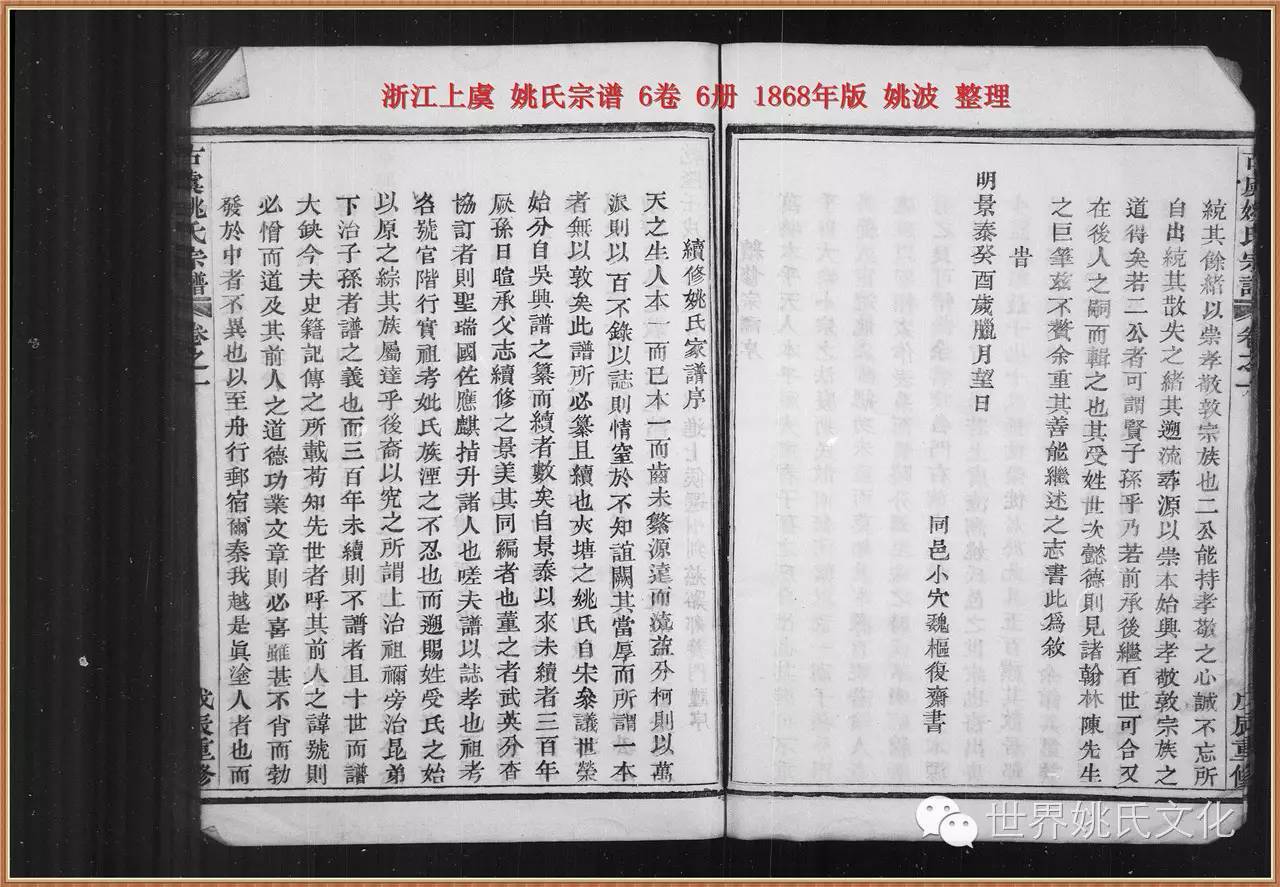 浙江上虞 姚氏宗谱 6卷 6册 1868年版 姚波 整理
統其餘緒以崇孝敬敦宗族也二公能持孝敬之心誠不忘所
自出統其散失之緒其遡流尋源以崇本始興孝敬敦宗族之
道得矣若二公者可謂賢子孫乎乃若前承後繼百世可合又
在後人之嗣而輯之也其受姓世次懿德則見諸翰林陳先生
之巨筆茲不贅余重其善能繼述之志書此爲敘
旹
明景泰癸酉歲臘月望日
同邑小穴魏樞復齋書
續修姚氏家譜序
天之生人本一而已本一而齒未繁源遠而流益分柯則以萬
派則以百不錄以誌則情窒於不知誼闕其當厚而所謂一本
者無以敦矣此譜所必纂且續也夾塘之姚氏自宋參議世榮
始分自吳興譜之纂而續者數矣自景泰以來未續者三百年
厥孫日暄承父志續修之景美其同編者也董之者武英分查
協訂者則聖瑞國佐應麒指升諸人也嗟夫譜以誌孝也祖考
名號官階行實祖考妣氏族湮之不忍也而遡賜姓受氏之始
以原之綜其族屬達乎後裔以究之所謂上治祖禰旁治昆弟
下治子孫者譜之義也而三百年未續則不譜者且十世而譜
大缺今夫史籍記傳之所載苟知先世者呼其前人之諱號則
必憎而道及其前人之道德功業文章則必喜雖甚不肖而勃
發於中者不異也以至舟行郵宿爾秦我越是眞塗人者也而
古虞姚氏宗譜
卷之一
戊辰重修
世界姚氏文化